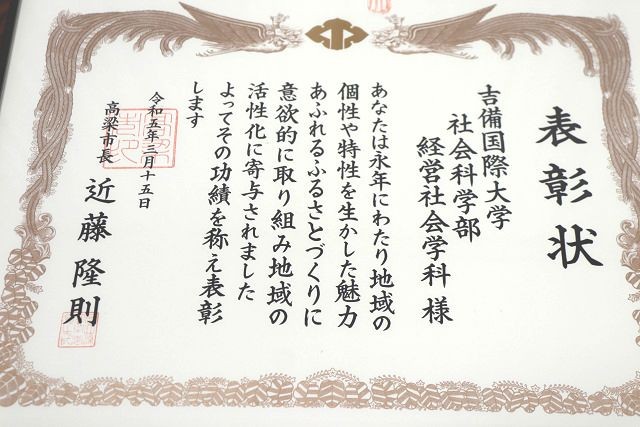 表彰状
吉備国際大学
社会科学部
経営社会学科 様
あなたは永年にわたり地域の
個性や特性を生かした魅力
あふれるふるさとづくりに
意欲的に取り組み地域の
活性化に寄与されました
よってその功績を称え表彰
します
令和五年三月十五日
高梁市長 近藤隆則